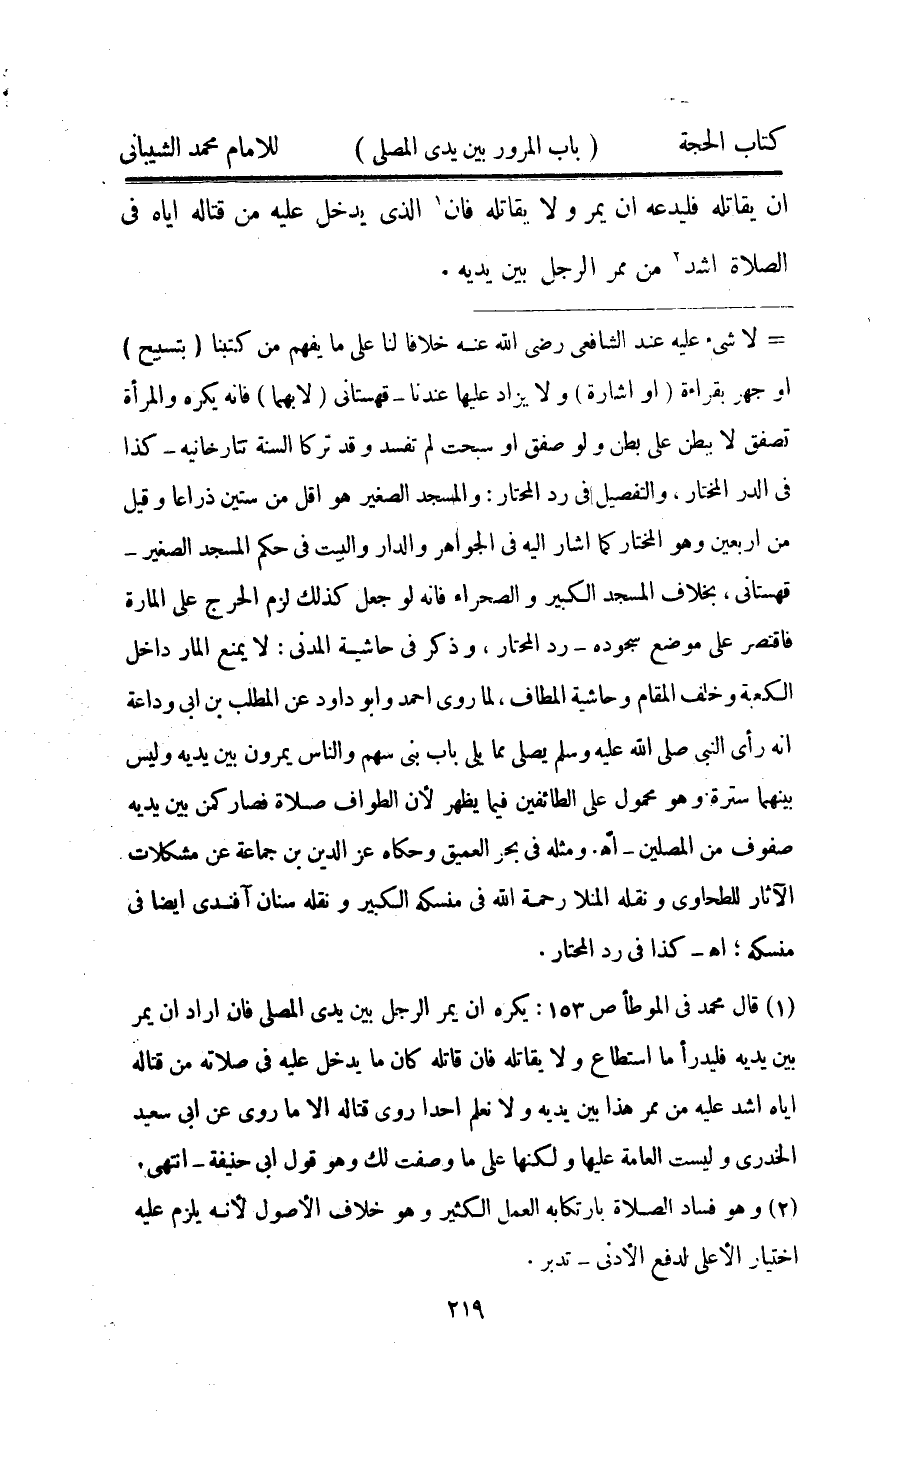 كتاب الحجة ( باب المرور بين يدى المصلى ) للامام محمد الشيبانى
ان يقاتله فليدعه ان يمر و لا يقاتله فان١ الذى يدخل عليه من قتاله اياه فى
الصلاة اشد٢ من ممر الرجل بين يديه .
= لا شىء عليه عند الشافعى رضى الله عنه خلافا لنا على ما يفهم من كتبنا ( بتسبيح )
او جهر بقراءة ( او اشارة ) و لا يزاد عليها عندنا ـ قهستانى ( لا بهما ) فانه يكره والمرأة
تصفق لا ببطن على بطن و لو صفق او سبحت لم تفسد و قد تركا السنة تتارخانيه ـ كذا
فى الدر المختار ، والتفصيل فى رد المحتار : والمسجد الصغير هو اقل من ستين ذراعا و قيل
من اربعين وهو المختار كما اشار اليه فى الجواهر والدار والبيت فى حكم المسجد الصغير ـ
قهستانى ، بخلاف المسجد الكبير و الصحراء فانه لو جعل كذلك لزم الحرج على المارة
فاقتصر على موضع سجوده ـ رد المحتار ، و ذكر فى حاشية المدنى : لا يمنع المار داخل
الكعبة و خلف المقام و حاشية المطاف ، لما روى احمد وابو داود عن المطلب بن ابى وداعة
انه رأى النبى صلى الله عليه وسلم يصلى مما يلى باب بنى سهم والناس يمرون بين يديه وليس
بينهما سترة وهو محمول على الطائفين فيما يظهر لأن الطواف صلاة فصار كمن بين يديه
صفوف من المصلين ـ اه‍ . ومثله فى بحر العميق وحكاه عز الدين بن جماعة عن مشكلات
الآثار للطحاوى و نقله المنلا رحمة الله فى منسكه الكبير و نقله سنان آفندى ايضا فى
منسكه ؛ اه‍ ـ كذا فى رد المحتار .
(١) قال محمد فى الموطأ ص ١٥٣ : يكره ان يمر الرجل بين يدى المصلى فان اراد ان يمر
بين يديه فليدرأ ما استطاع و لا يقاتله فان قاتله كان ما يدخل عليه فى صلاته من قتاله
اياه اشد عليه من ممر هذا بين يديه و لا نعلم احدا روى قتاله الا ما روى عن ابى سعيد
الخدرى و ليست العامة عليها و لكنها على ما وصفت لك وهو قول ابى حنيفة ـ انتهى .
(٢) و هو فساد الصلاة بارتكابه العمل الكثير و هو خلاف الأصول لأنه يلزم عليه
اختيار الأعلى لدفع الأدنى ـ تدبر .
٢١٩